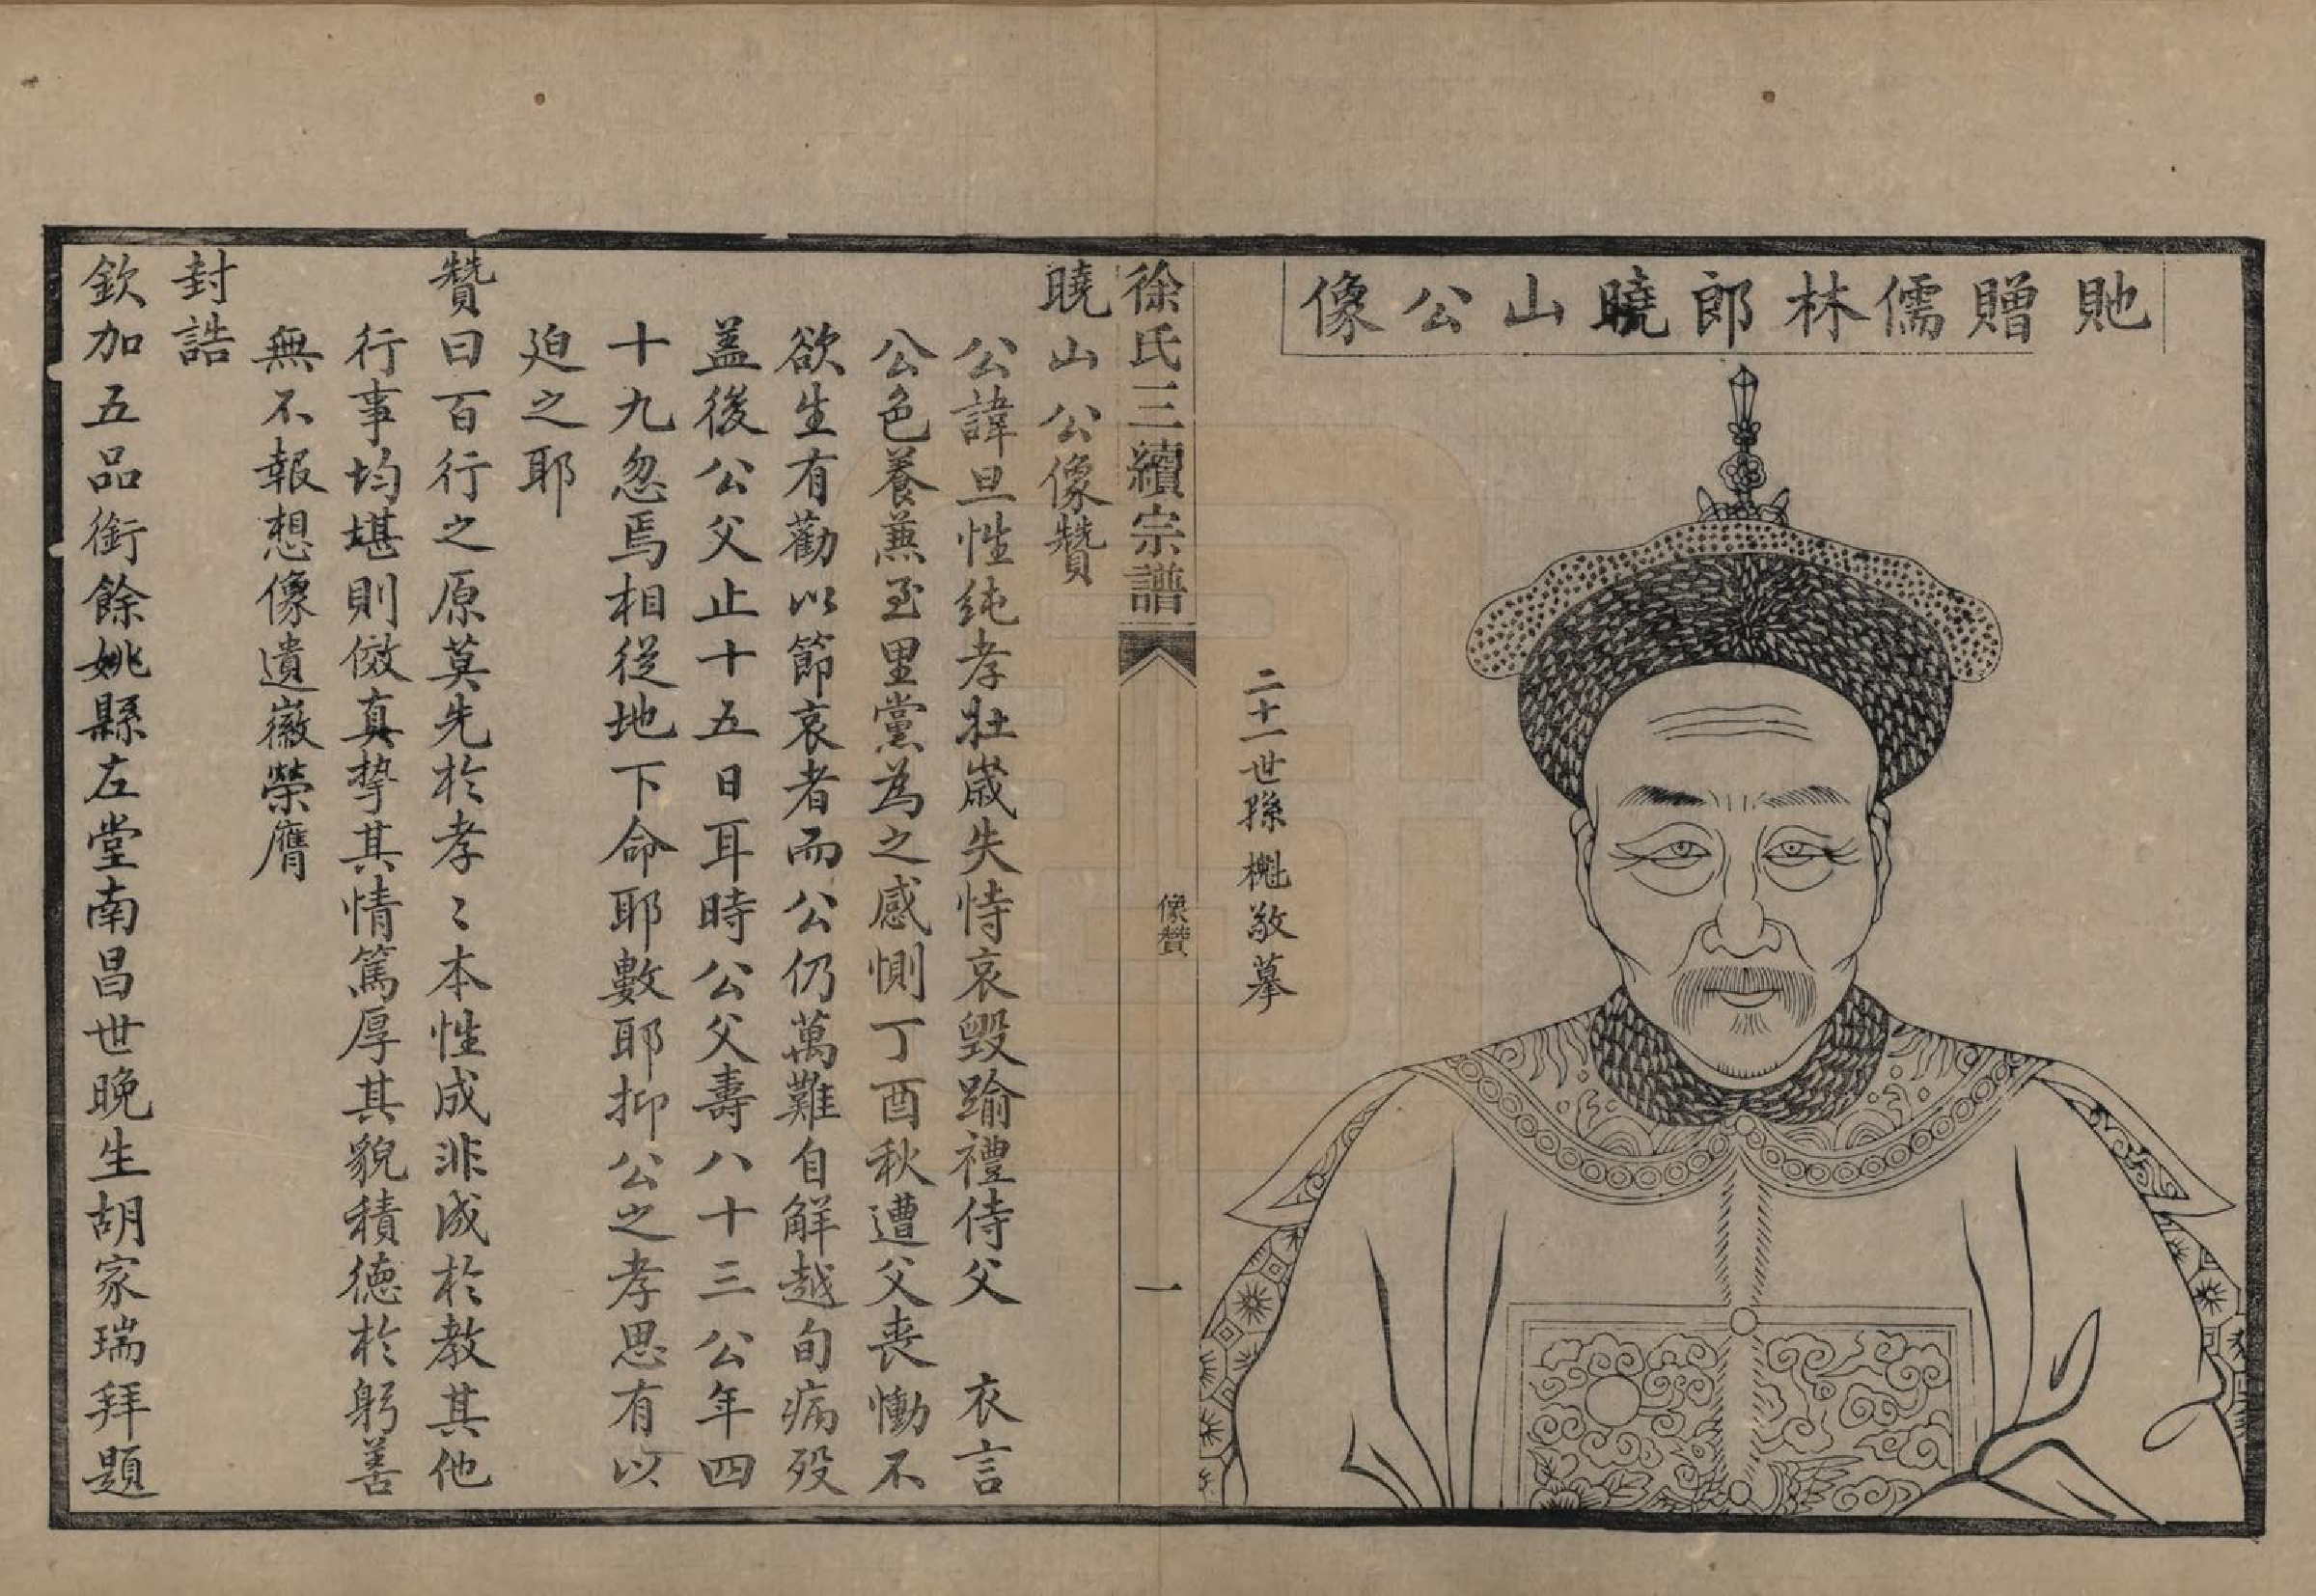 貤贈儒林郎曉山公像
二十一世孫櫆敬摹
徐氏三續宗譜
像贊
一
曉山公像贊
公諱旦性純孝壯歲失恃哀毀踰禮侍父 衣言
公色養蒸至里黨為之感惻丁酉秋遭父丧慟不
欲生有勸以節哀者而公仍萬難自解越旬病歿
盖後公父止十五日耳時公父壽八十三公年四
十九忽焉相從地下命耶數耶抑公之孝思有以
迫之耶
贊曰百行之原莫先於孝〻本性成非成於教其他
行事均堪則傚真摯其情篤厚其貌積德於躬善
無不報想像遺徽榮膺
封誥
欽加五品銜餘姚縣左堂南昌世晚生胡家瑞拜題